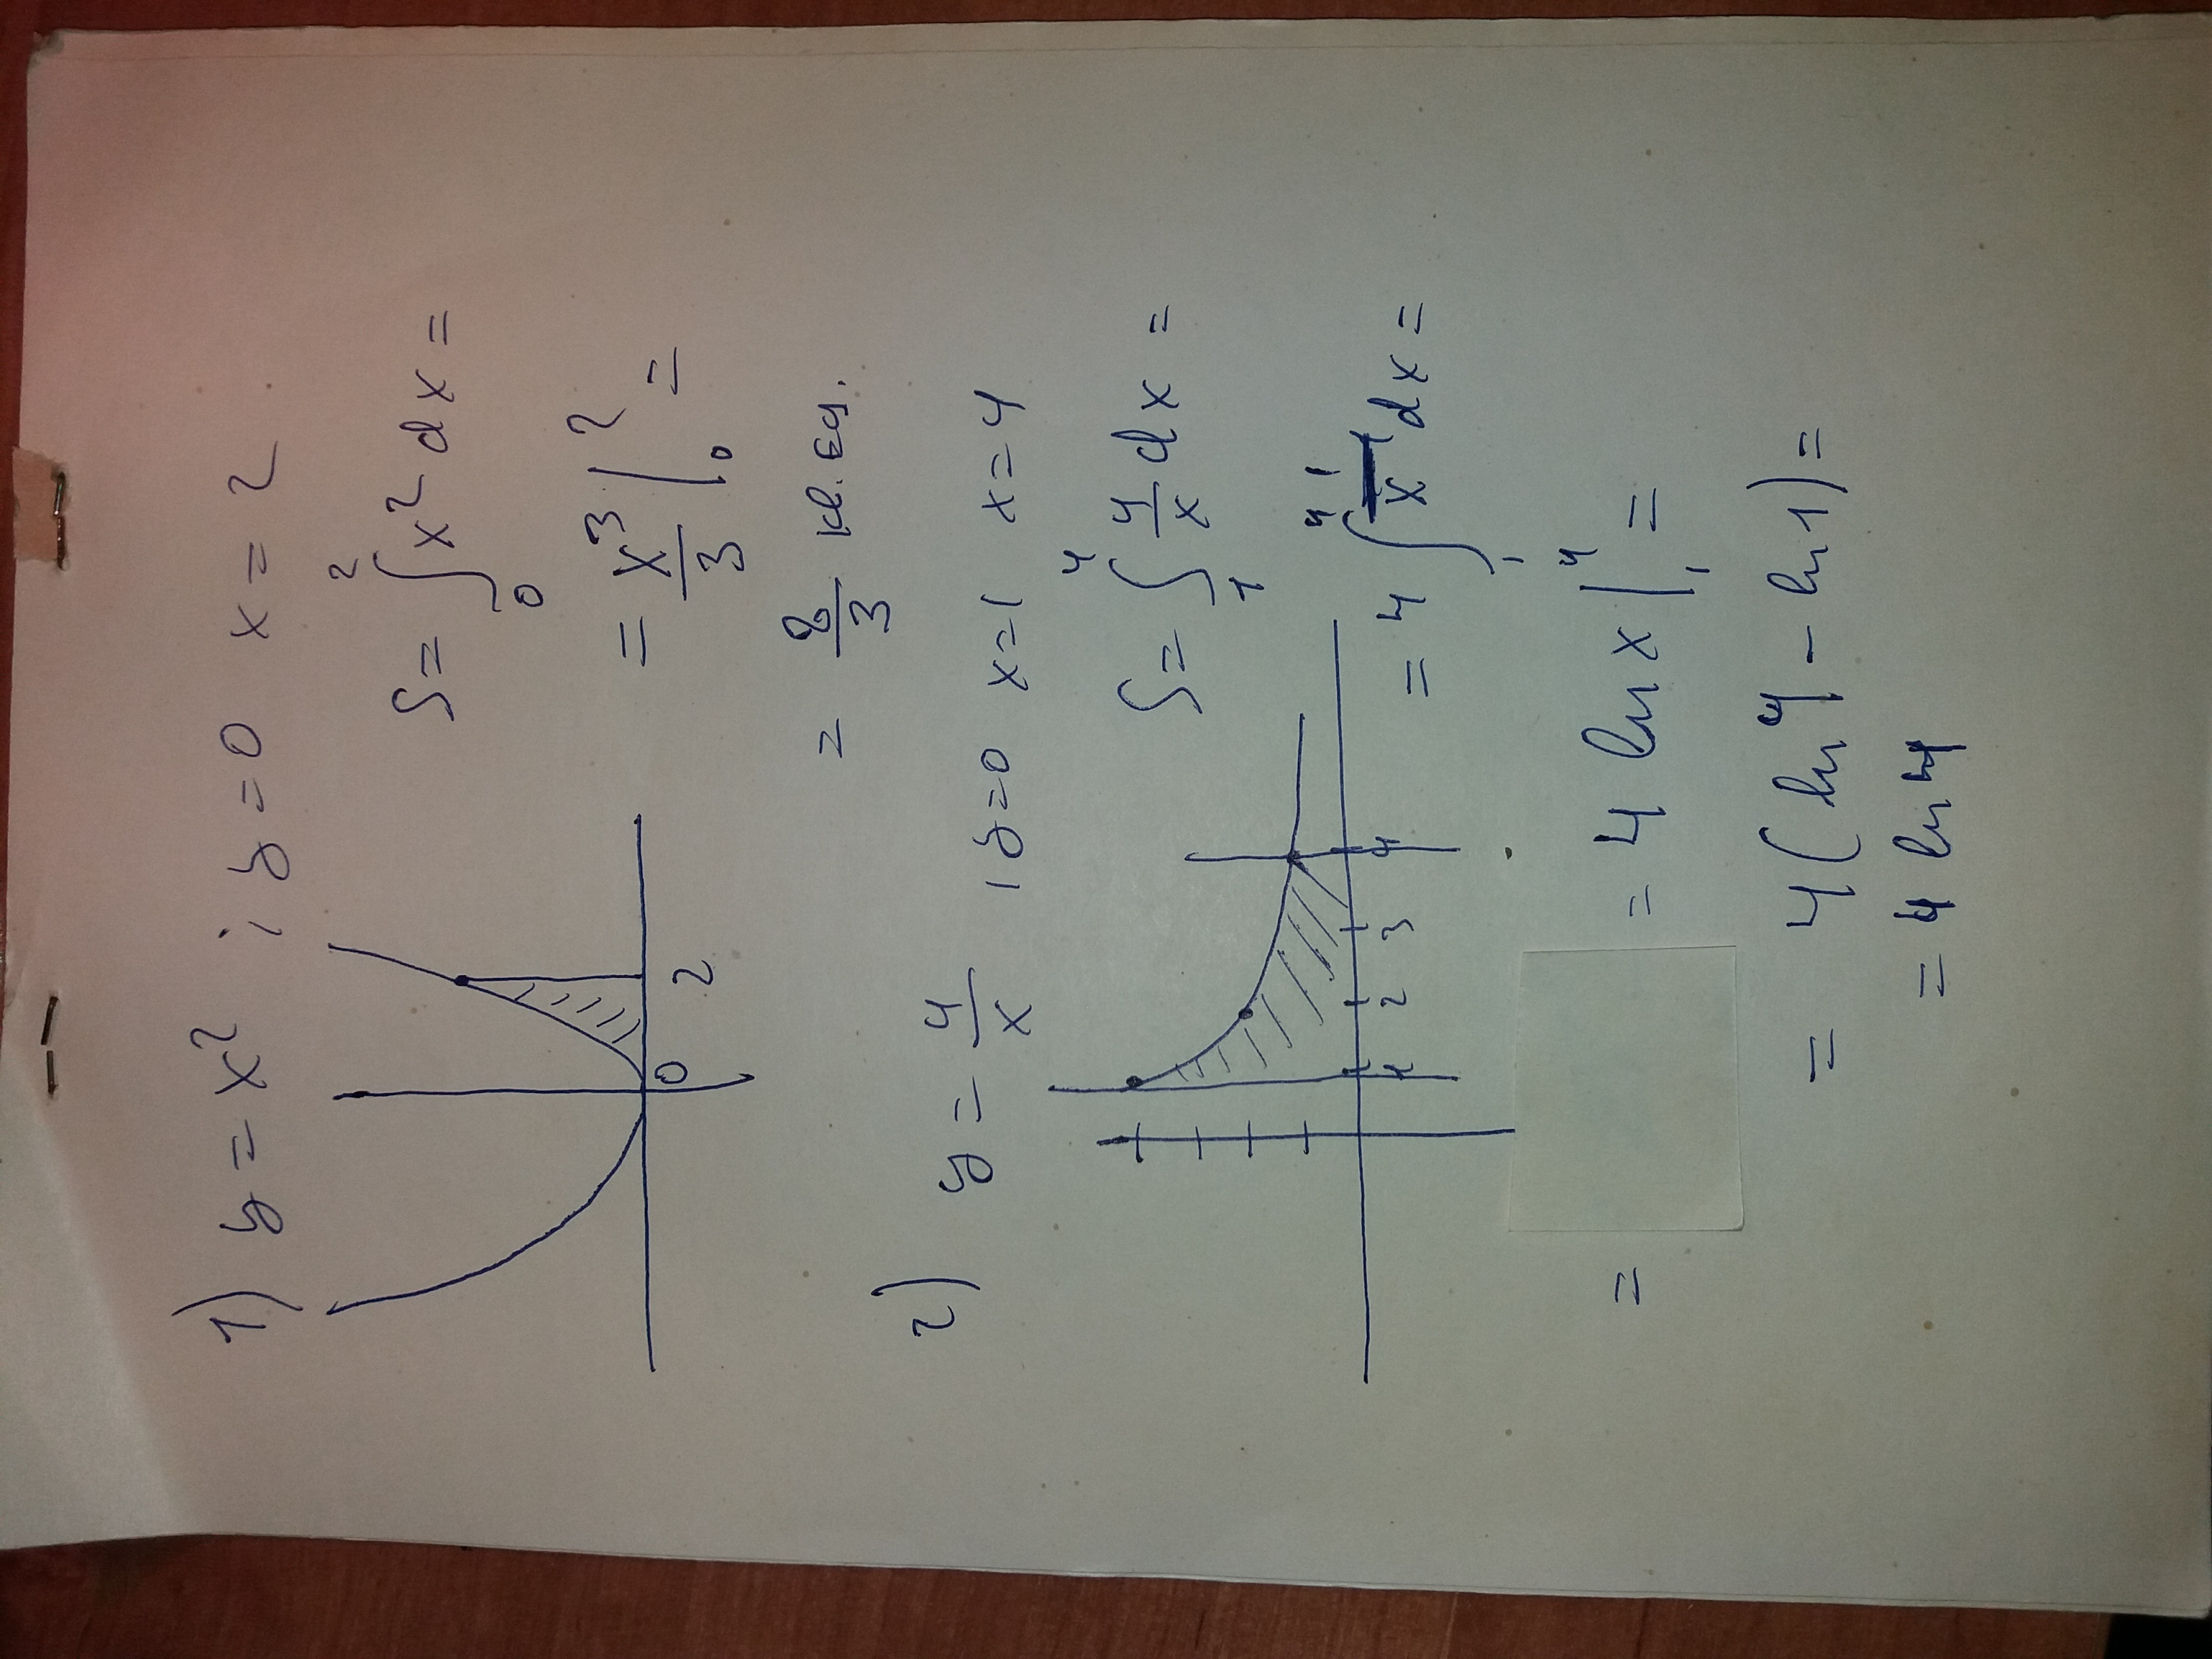 1) y = x² ; y = 0 x = 2
S = ∫₀² x² dx =
= x³/3 |₀² =
= 8/3 кв. ед.
0 2
2) y = 4/x , y = 0 x = 1 x = 4
S = ∫₁⁴ 4/x dx =
= 4 ∫₁⁴ 1/x dx =
1 2 3 4
= = 4 ln x |₁⁴ =
= 4 (ln 4 - ln 1) =
= 4 ln 4